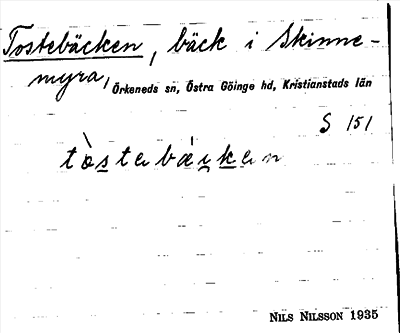 Tostebäcken, bäck i Skinne-
myra, Örkeneds sn, Östra Göinge hd, Kristianstads län
S 151
NILS NILSSON 1935